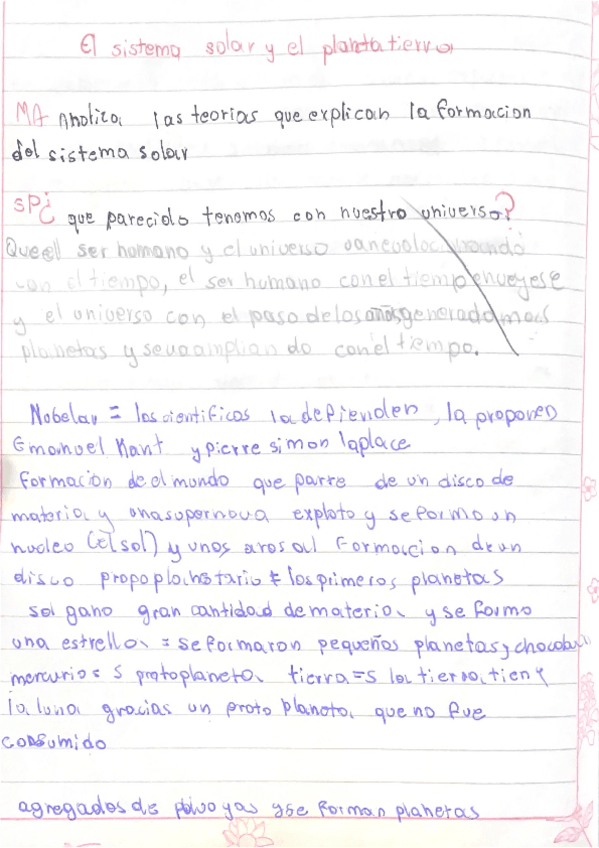 El sistema solar y el planta tierra
MA Analiza las teorias que explican la formacion
del sistema solar
SP ¿que parecido tenemos con nuestro universo?
Que el ser humano y el universo van evolucionando
con el tiempo, el ser humano con el tiempo envegese
y el universo con el paso de los años generado mas
planetas y se va ampliando con el tiempo.
Nobelar = los cientificos la defienden, la proponen
Emanuel Kant y pierre simon laplace
formacion de el mundo que parte de un disco de
materia y una supernova exploto y se formo un
nucleo (el sol) y unos aros al Formacion de un
disco los primeros planetas
sol gano gran cantidad de materia y se formo
una estrella = se formaron pequeños planetas y chocaban
mercurio = 5 protoplaneta tierra = 5 la tierra tiene
la luna gracias un proto planeta que no fue
consumido
agregados de polvo y gas y se forman planetas